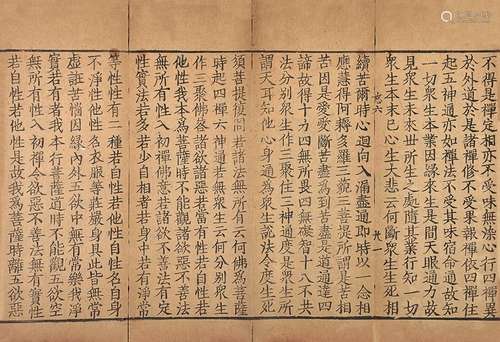 不得是禪定相亦不受味無染心行四禪異
於外道是諸禪修不受果報禪依四禪住
起五神通亦如禪法不受其味宿命通故知
一切衆生本業因緣來生是間天眼通力故
見衆生未來世所生之處隨其業行知一切
衆生本末已心生大悲云何斷衆生生死相
續苦爾時心迴向入漏盡通即時以一念相
應慧得阿耨多羅三藐三菩提所謂是苦相
苦因是愛愛斷苦盡為到苦盡是道通達四
諦故得十力四無所畏四無礙智十八不共
法分別衆生作三聚住三神通度是衆生所
謂天耳知他心身通為衆生說法令度生死
須菩提復問若諸法無所有云何佛為菩薩
時起四禪六神通若衆生無云何分別衆生
作三聚佛答諸欲諸惡若當有性若自性若
他性我本為菩薩時不能觀諸欲惡不善法
無所有性入初禪佛意若諸欲諸惡法有定
性實法若多若少自身中若有淨常
等性性有二種若自性若他性自性名自身
不淨性他性名衣服等莊嚴身具此皆無常
虛誑苦惱因緣內外五欲中無有常樂我淨
實若有者我本行菩薩道時不能觀五欲空
無所有性入初禪今欲惡不善法無有實性
若自性若他性是故我為菩薩時離五欲惡